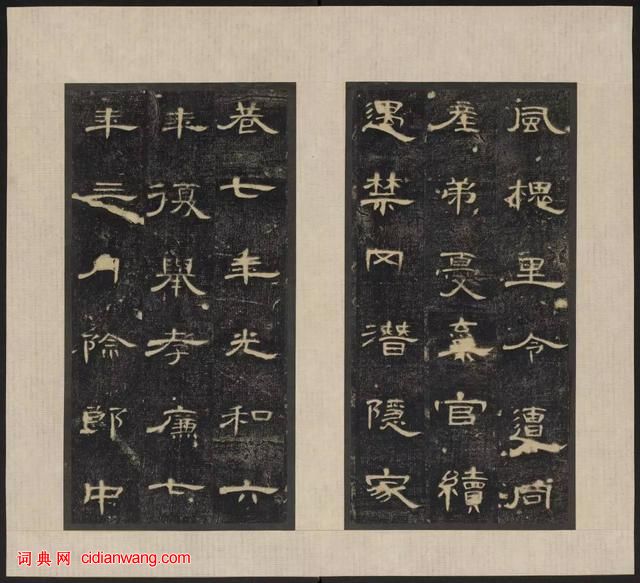 風槐里令遭同
產弟憂棄官續
遇禁网潛隱家
巷七年光和六
年復舉孝廉七
年三月除郎中
词典网 cidianwang.com